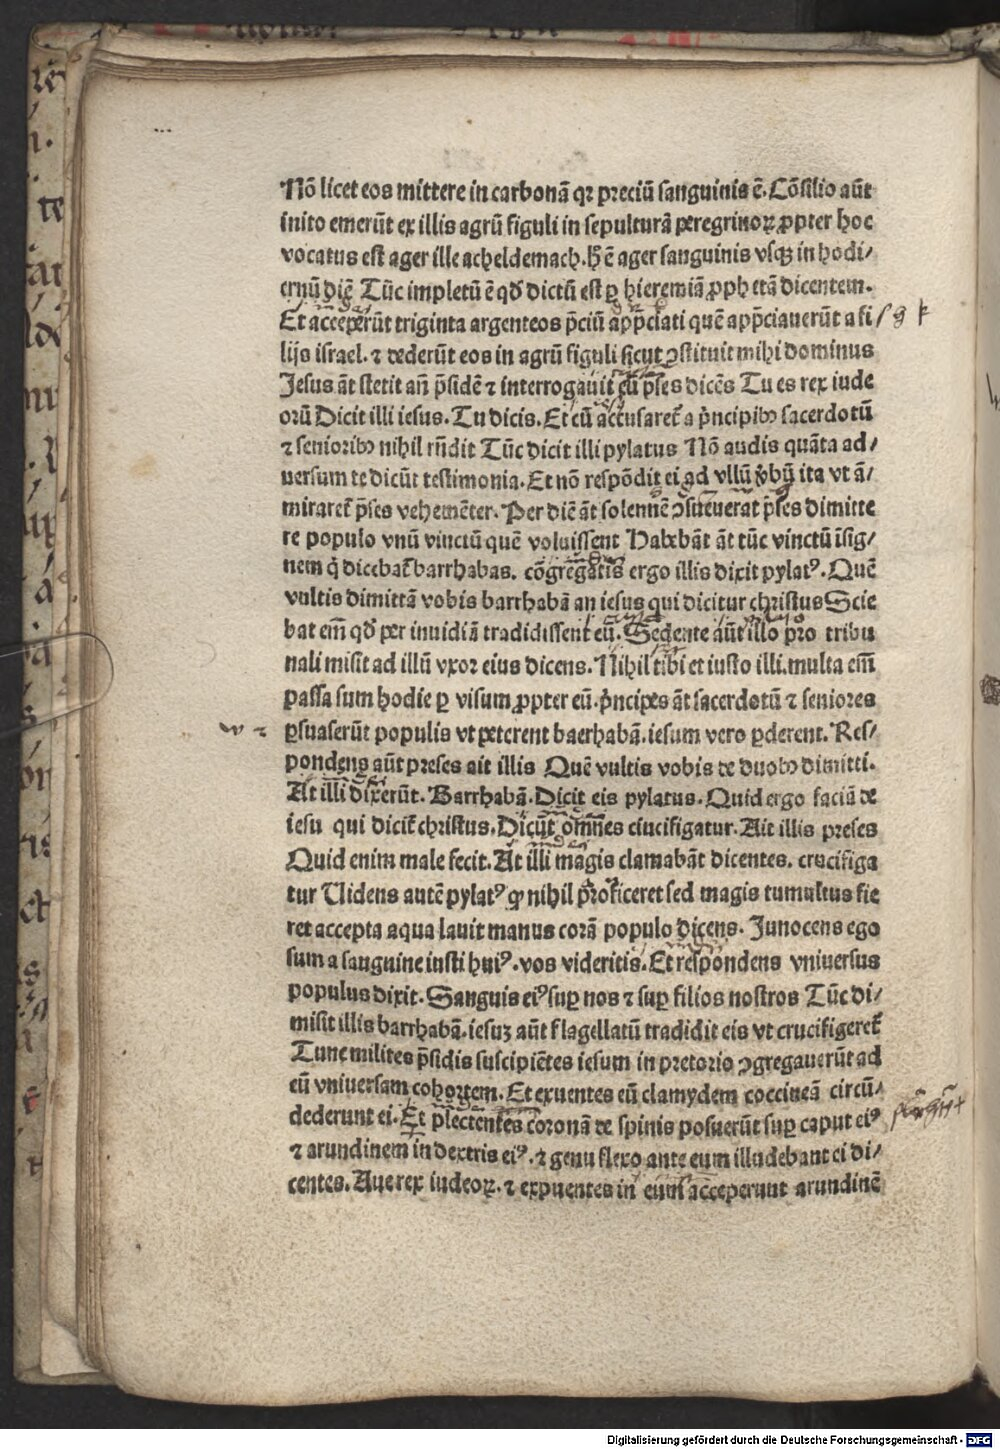 Nō licet eos mittere in carbonā qꝛ preciū sanguinis ē. Cōsilio aūt
inito emerūt ex illis agrū figuli in sepulturā peregrinoꝝ ꝓpter hoc
vocatus est ager ille acheldemach. h̄ ē ager sanguinis vsqꝫ in hodi/
ernū diē Tūc impletū ē qd̄ dictū est ꝑ hieremiā ꝓphetā dicentem.
Et acceperūt triginta argenteos p̄ciū app̄ciati quē app̄ciauerūt a fi
lijs israel. ⁊ dederūt eos in agrū figuli sicut ꝯstituit mihi dominus
Jesus āt stetit an̄ p̄sidē ⁊ interrogauit eū p̄ses dicēs Tu es rex iude
orū Dicit illi iesus. Tu dicis. Et cū accusaret̄ a p̄ncipibꝰ sacerdotū
⁊ senioribꝰ nihil rn̄dit Tūc dicit illi pylatus Nō audis quāta ad/
uersum te dicūt testimonia. Et nō respōdit ei ad vllū v̄bū ita vt ā/
miraret̄ p̄ses vehemēter. Per diē āt solennē ꝯsueuerat p̄ses dimitte
re populo vnū vinctū quē voluissent Habebāt āt tūc vinctū īsig/
nem q̄ dicebat̄ barrhabas. cōgregatis ergo illis dixit pylatꝰ. Quē
vultis dimittā vobis barrhabā an iesus qui dicitur christus Scie
bat em̄ qd̄ per inuidiā tradidissent eū. Sedente aūt illo pro tribu
nali misit ad illū vxor eius dicens. Nihil tibi et iusto illi. multa em̄
passa sum hodie ꝑ visum ꝓpter eū. p̄ncipes āt sacerdotū ⁊ seniores
ꝑsuaserūt populis vt peterent baerhabā. iesum vero ꝑderent. Res/
pondens aūt preses ait illis Quē vultis vobis de duobꝰ dimitti.
At illi dixerūt. Barrhabā. Dicit eis pylatus. Quid ergo faciā de
iesu qui dicit̄ christus. Dicūt omnes ciucifigatur. Ait illis preses
Quid enim male fecit. At illi magis clamabāt dicentes. crucifiga
tur Uidens autē pylatꝰ ꝙ nihil proficeret sed magis tumultus fie
ret accepta aqua lauit manus corā populo dicens. Junocens ego
sum a sanguine iusti huiꝰ. vos videritis. Et respondens vniuersus
populus dixit. Sanguis eiꝰ suꝑ nos ⁊ suꝑ filios nostros Tūc di/
misit illis barrhabā. iesuꝫ aūt flagellatū tradidit eis vt crucifigeret̄
Tunc milites p̄sidis suscipiētes iesum in pretorio ꝯgregauerūt ad
eū vniuersam cohortem. Et exuentes eū clamydem coccineā circū/
dederunt ei. Et plectentes coronā de spinis posuerūt suꝑ caput eiꝰ
⁊ arundinem in dextris eiꝰ. ⁊ genu flexo ante eum illudebant ei di/
centes. Aue rex iudeoꝝ. ⁊ expuentes in eum acceperunt arundinē
Digitalisierung gefördert durch die Deutsche Forschungsgemeinschaft - DFG